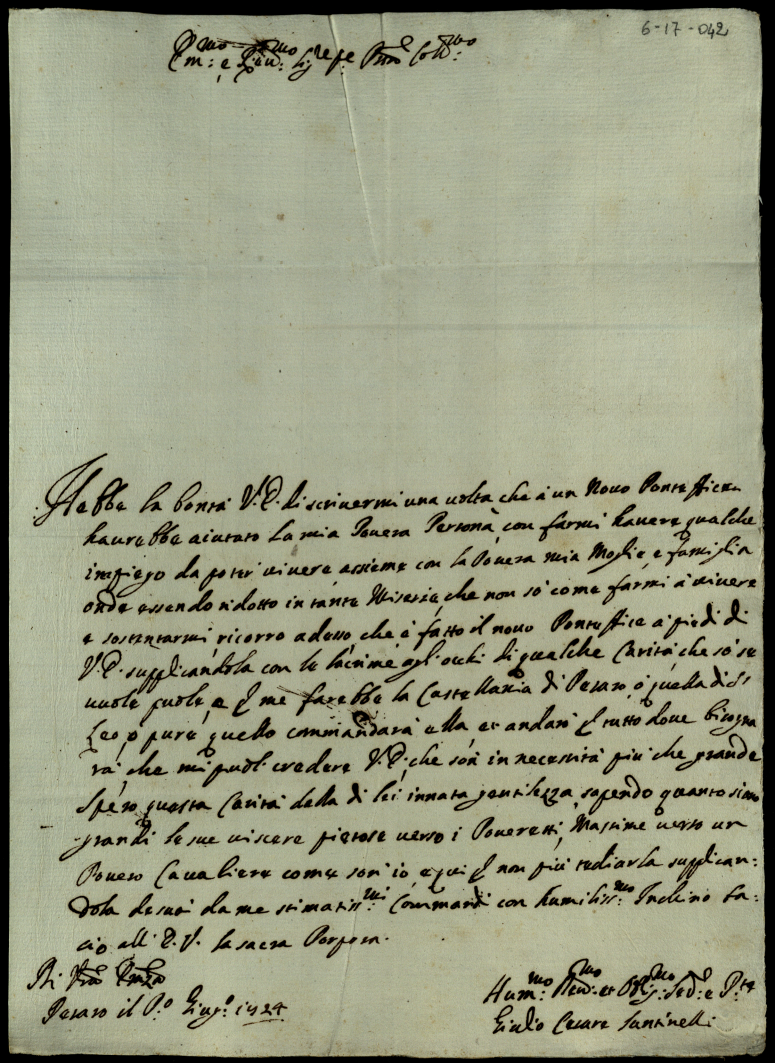 6-17-042
Em:mo e Rev:mo Sig:re Pne Coll:mo
Hebbe la bontà V.E. di scrivermi una volta che à un Novo Pontefice
haverebbe aiutato la mia Povera Persona con farmi havere qualche
impiego da poter vivere assieme con la Povera mia Moglie, e famiglia
onde essendo ridotto in tante Miserie, che non sò come farmi à vivere
e sostentarmi, ricorro adesso che è fatto il novo Pontefice à piedi di
V.E. supplicandola con le lacrime agl'occhi di qualche Carità, che sò se
vuole puole, e p me farebbe la Castellania di Pesaro, ò quella di S.
Leo, ò pure quello commandarà ella et andarò p tutto dove bisogna
rà, che mi puol credere V.E. che son in necessità più che grande
Spero questa Carità della di lei innata gentilezza, sapendo quanto sino
grandi le sue viscere pietose verso i Poveretti, Massime verso un
Povero Cavaliere come son io, e qui p non più tediarla supplican:
dola de suoi da me stimatiss:mi Commandi con humiliss:mo Inchino ba:
cio all'E.V. la sacra Porpora.
Di Vra Emza
Pesaro il P:o Giug:o 1724
Hum:mo Dev:mo et Oblig:mo Ser:e
Giulio Cesare Santinelli